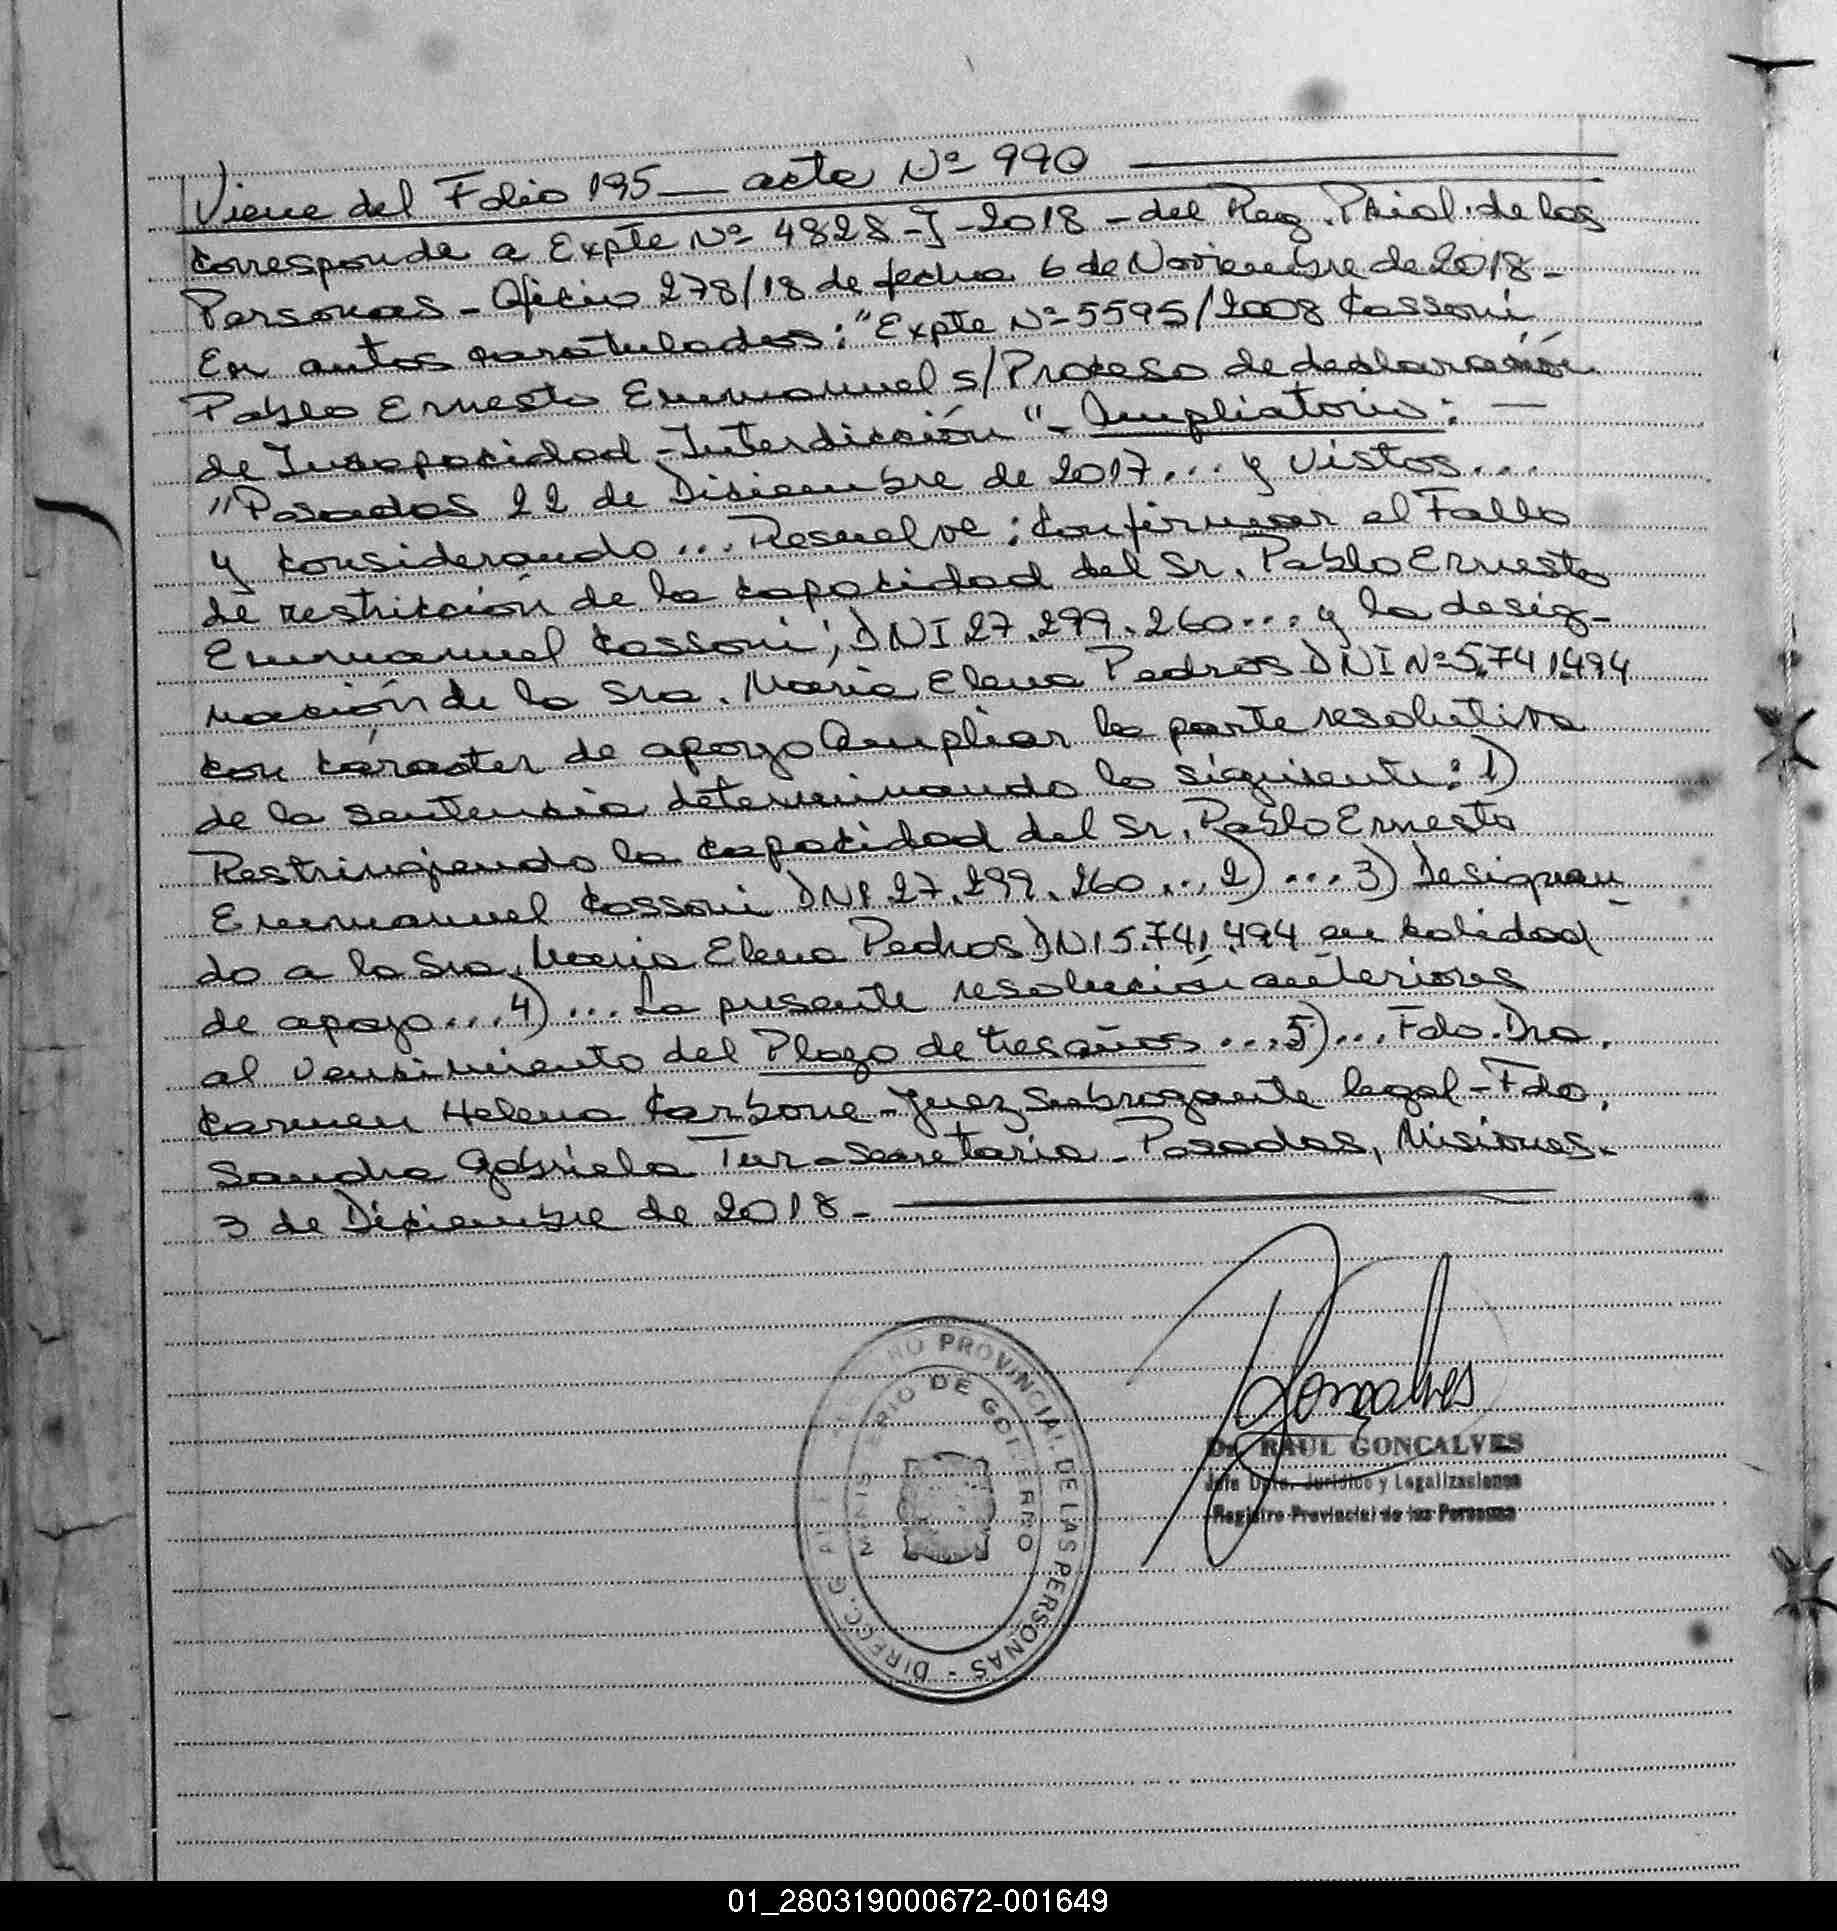 Viene del Folio 195 — acta Nº 990 —
Corresponde a Expte Nº 4828-J-2018 - del Reg. Pcial. de las
Personas - Oficio 278/18 de fecha 6 de Noviembre de 2018 -
En autos caratulados: "Expte Nº 5595/2008 Cassoni
Pablo Ernesto Emmanuel s/ Proceso de declaración
de Incapacidad - Interdicción" - Ampliatorio: —
"Posadas 22 de Diciembre de 2017... y vistos...
y considerando... Resuelve: Confirmar el Fallo
de restricción de la capacidad del Sr. Pablo Ernesto
Emmanuel Cassoni, DNI 27.299.260... y la desig-
nación de la Sra. Maria Elena Pedros DNI Nº 5.741.494
con carácter de apoyo Ampliar la parte resolutiva
de la sentencia determinando lo siguiente: 1)
Restringiendo la capacidad del Sr. Pablo Ernesto
Emmanuel Cassoni DNI 27.299.260... 2)... 3) Designan-
do a la Sra. Maria Elena Pedros DNI 5.741.494 en calidad
de apoyo... 4)... La presente resolución anteriores
al vencimiento del Plazo de tres años... 5)... Fdo. Dra.
Carmen Helena Carbone - Juez Subrogante legal - Fdo.
Sandra Gabriela Tur - Secretaria - Posadas, Misiones.
3 de Diciembre de 2018. —
Goncalves
Dr. RAUL GONCALVES
Jefe Dpto. Jurídico y Legalizaciones
Registro Provincial de las Personas
PROVINCIAL DE LAS PERSONAS - DIRECC. G
MINISTERIO DE GOBIERNO
01_280319000672-001649